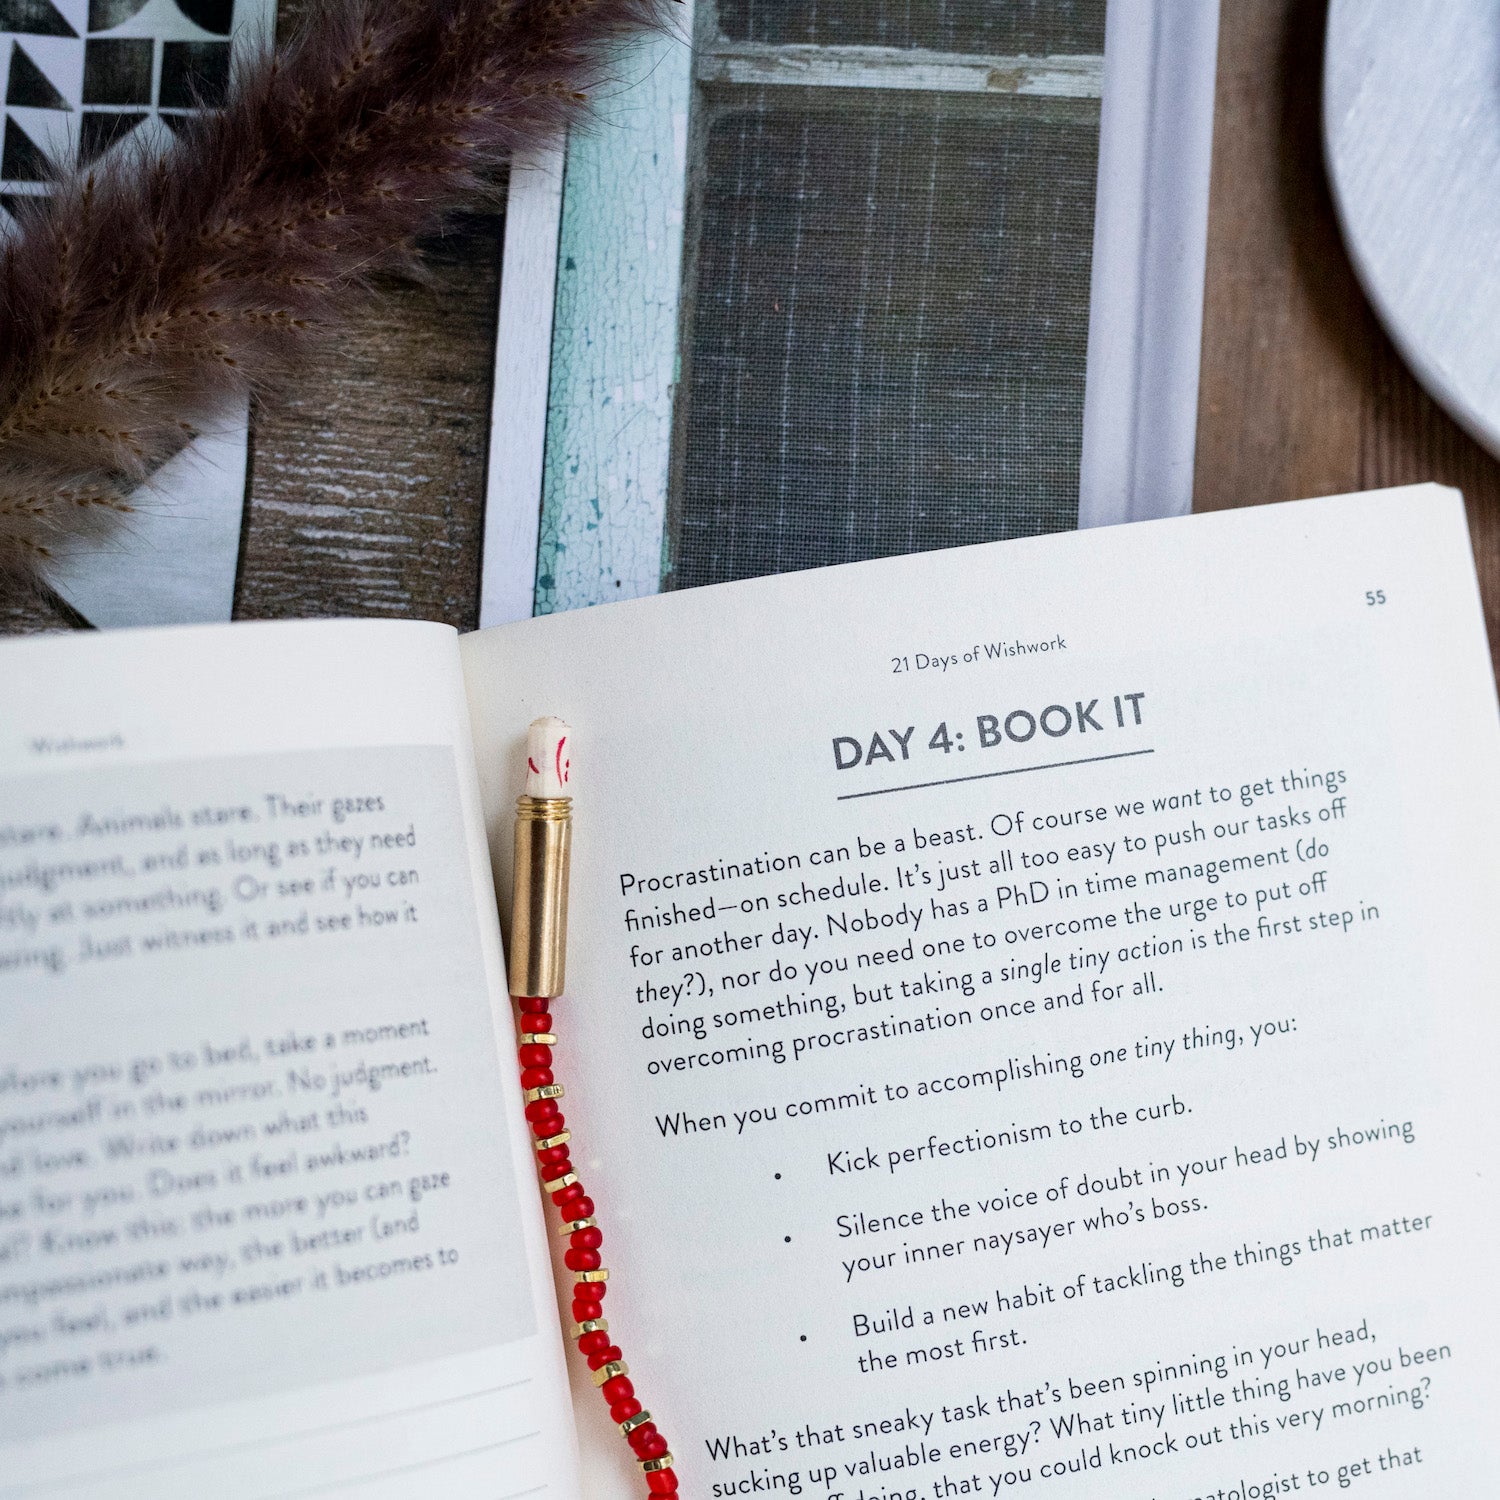 Wishwork
stare. Animals stare. Their gazes
judgment, and as long as they need
at something. Or see if you can
Just witness it and see how it
before you go to bed, take a moment
yourself in the mirror. No judgment.
love. Write down what this
for you. Does it feel awkward?
Know this: the more you can gaze
compassionate way, the better (and
you feel, and the easier it becomes to
come true.
55
21 Days of Wishwork
DAY 4: BOOK IT
Procrastination can be a beast. Of course we want to get things
finished—on schedule. It's just all too easy to push our tasks off
for another day. Nobody has a PhD in time management (do
they?), nor do you need one to overcome the urge to put off
doing something, but taking a single tiny action is the first step in
overcoming procrastination once and for all.
When you commit to accomplishing one tiny thing, you:
• Kick perfectionism to the curb.
• Silence the voice of doubt in your head by showing
your inner naysayer who's boss.
• Build a new habit of tackling the things that matter
the most first.
What's that sneaky task that's been spinning in your head,
sucking up valuable energy? What tiny little thing have you been
doing, that you could knock out this very morning?
to get that